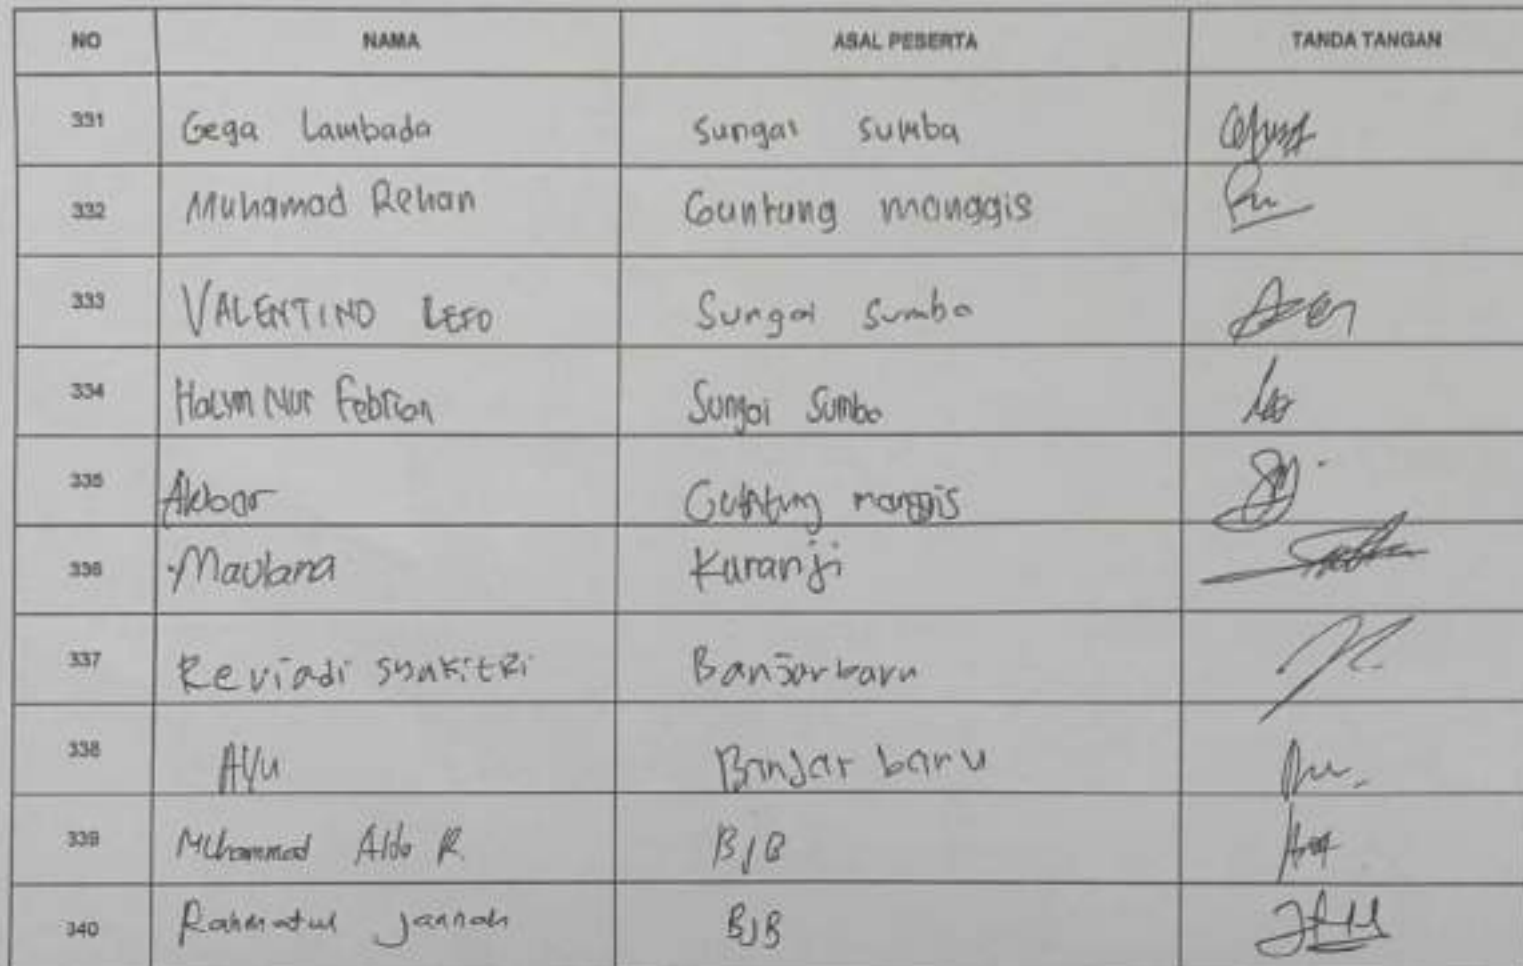 NO NAMA ASAL PESERTA TANDA TANGAN
331 Gega Lambada Sungai Sumba
332 Muhamad Rehan Guntung manggis
333 VALENTINO Sungai Sumba
334 Nur Febrian Sungai Sumba
335 Akbar Guntung manggis
336 Maulana Kuranji
337 Reviadi Banjarbaru
338 AYu Banjar baru
339 Muhammad Aldo R. BJB
340 Rahmatul Jannah BJB